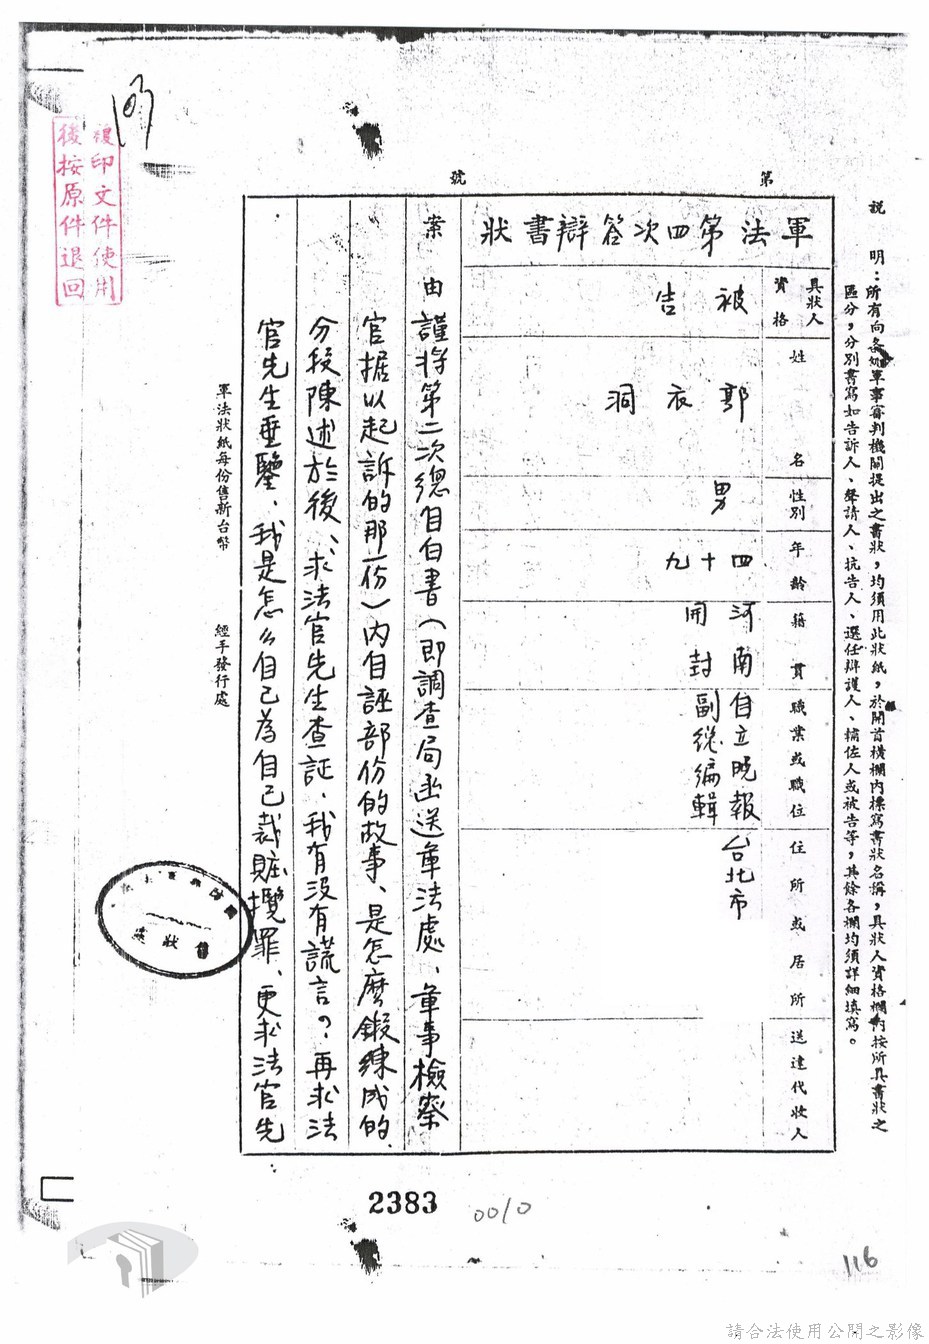 說　明：所有向各級軍事審判機關提出之書狀，均須用此狀紙，於開首橫欄內標寫書狀名稱，具狀人資格欄內按所具書狀之
區分，分別書寫如告訴人、聲請人、抗告人、選任辯護人、輔佐人或被告等，其餘各欄均須詳細填寫。
第　號
軍法第四次答辯書狀
具狀人資格
被告
姓名
郭衣洞
性別
男
年齡
四十九
籍貫
河南
開封
職業或職位
自立晚報
副總編輯
住所或居所
台北市
送達代收人
案由
謹將第二次總自白書(即調查局函送軍法處、軍事檢察
官据以起訴的那一份)內自誣部份的故事、是怎麼鍛練成的、
分段陳述於後、求法官先生查証、我有沒有謊言？再求法
官先生垂鑒、我是怎么自己為自己裁賍攬罪、更求法官先
軍法狀紙每份售新台幣　經手發行處
複印文件使用
後按原件退回
2383
0010
116
請合法使用公開之影像